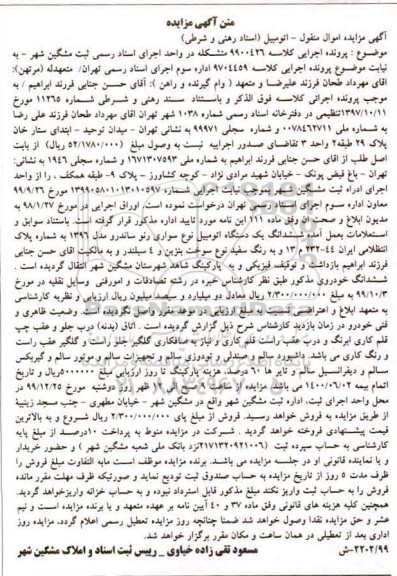 متن آگهی مزایده
آگهی مزایده اموال منقول - اتومبیل (اسناد رهنی و شرطی)
موضوع : پرونده اجرایی کلاسه ۹۹۰۰۴۲۶ متشکله در واحد اجرای اسناد رسمی ثبت مشگین شهر - به
نیابت موضوع پرونده اجرایی کلاسه ۹۷۰۴۴۵۹ اداره سوم اجرای اسناد رسمی تهران/ متعهدله (مرتهن):
آقای مهرداد طحان فرزند علیرضا و متعهد ( وام گیرنده و راهن ): آقای حسن جنایی فرزند ابراهیم / به
موجب پرونده اجرائی کلاسه فوق الذکر و باستناد سند رهنی و شرطی شماره ۱۱۲۶۵ مورخ
۱۳۹۷/۱۰/۱۱ تنظیمی در دفترخانه اسناد رسمی شماره ۱۰۳۸ شهر تهران اقای مهرداد طحان فرزند علی رضا
به شماره ملی ۰۰۷۸۴۶۷۷۱۱ و شماره سجلی ۹۹۹۷۱ به نشانی تهران - میدان توحید - ابتدای ستار خان
پلاک ۲۹ طبقه۲ واحد ۳ تقاضای صدور اجراییه نسبت به وصول مبلغ (۵۲/۱۷۸۰/۰۰۰ ریال) از بابت
اصل طلب از اقای حسن جنایی فرزند ابراهیم به شماره ملی ۱۶۷۱۳۰۷۵۹۳ و شماره سجلی ۱۹۴۶ به نشانی:
تهران - باغ فیض پونک - خیابان شهید مرادی نژاد - کوچه کشاورز - پلاک ۹- طبقه همکف ، را از واحد
اجرای ادراه ثبت مشگین شهر بموجب نیابت اجرایی شماره ۱۳۹۹۰۵۸۰۱۰۱۳۰۱۰۵۹۷ مورخ ۹۹/۹/۲۶
معاون اداره سوم اجرای اسناد رسمی تهران درخواست نموده است. اوراق اجرایی در مورخ ۹۸/۱/۲۷ به
مدیون ابلاغ و صحت آن وفق ماده ۱۱۱ آین نامه مورد تایید اداره مذکور قرار گرفته است. باستناد سوابق و
استعلامات بعمل آمده ششدانگ یک دستگاه اتومبیل نوع سواری رنو ساندرو مدل ۱۳۹۶ به شماره پلاک
انتظلامی ایران ۴۴-۲۳۲ ، ۱۳ و به رنگ سفید نوع سوخت بنزین و ۴ سیلندر و به مالکیت اقای حسن جنایی
فرزند ابراهیم بازداشت و توقیف فیزیکی و به پارکینگ شاهد شهرستان مشگین شهر انتقال گردیده است .
ششدانگ خودروی مذکور طبق نظر کارشناس خبره در رشته تصادفات و امورفنی وسایل نقلیه در مورخ
۹۹/۱۰/۳ به مبلغ ۲/۳۰۰/۰۰۰/۰۰۰ ریال معادل دو میلیارد و سیصد میلیون ریال ارزیابی و نظریه کارشناسی
به متعهد ابلاغ و اعتراضی نسبت به مبلغ ارزیابی در موعد مقرر واصل نگردیده است. وضعیت ظاهری و
فنی خودرو در زمان بازدید کارشناس شرح ذیل گزارش گردیده است . اتاق (بدنه) درب جلو و عقب چپ
قلم کاری ابرنگ و درب عقب راست قلم کاری و نیاز به صافکاری گلگیر جلو راست و گلگیر عقب راست
و رنگ کاری می باشد. داشبورد سالم و صندلی و تودوزی سالم و تجهیزات سالم و موتور سالم و گیربکس
سالم و دیفرانسیل سالم و تایر ها ۶۰ درصد. هزینه پارکینگ تا روز ارزیابی مبلغ ۵۰۰۰۰۰۰ریال و تاریخ
اتمام بیمه ۱۴۰۰/۰۶/۰۲ می باشد. مزایده از ساعت ۹ صبح الی ۱۲ ظهر روز دوشنبه مورخ ۹۹/۱۲/۲۵ در
محل واحد اجرای ثبت، اداره ثبت مشگین شهر واقع در مشگین شهر - خیابان مطهری - جنب مسجد زینبیة
از طریق مزایده به فروش خواهد رسید. فروش از مبلغ پای ۲/۳۰۰/۰۰۰/۰۰۰ ریال شروع و به بالاترین
قیمت پیشنهادی فروخته خواهد گردید . شرکت در مزایده منوط به پرداخت ۱۰درصد از مبلغ پایه
کارشناسی به حساب سپرده ثبت (۲۱۷۱۳۲۰۹۲۱۰۰۶نزد بانک ملی شعبه مشگین شهر ) و حضور خریدار
و یا نماینده قانونی او در جلسه مزایده می باشد. برنده مزایده موظف است مابه التفاوت مبلغ فروش را
ظرف مدت ۵ روز از تاریخ مزایده به حساب صندوق ثبت تودیع نماید و صورتیکه ظرف مهلت مقرر مانده
فروش را به حساب ثبت واریز نکند مبلغ مذکور قابل استرداد نبوده و به حساب خزانه واریزخواهد گردید.
همچنین کلیه هزینه های قانونی وفق ماده ۳۷ و ۴۰ آیین نامه بر عهده متعهد و یا برنده مزایده است و نیم
عشر و حق مزایده نقدا وصول خواهد شد ضمنا چنانچه روز مزایده تعطیل رسمی اعلام گردد، مزایده روز
اداری بعد از تعطیلی در همان ساعت و مکان مقرر برگزار خواهد شد.
۲۲۰۲/۹۹-ش مسعود تقی زاده خیاوی _ رییس ثبت اسناد و املاک مشگین شهر